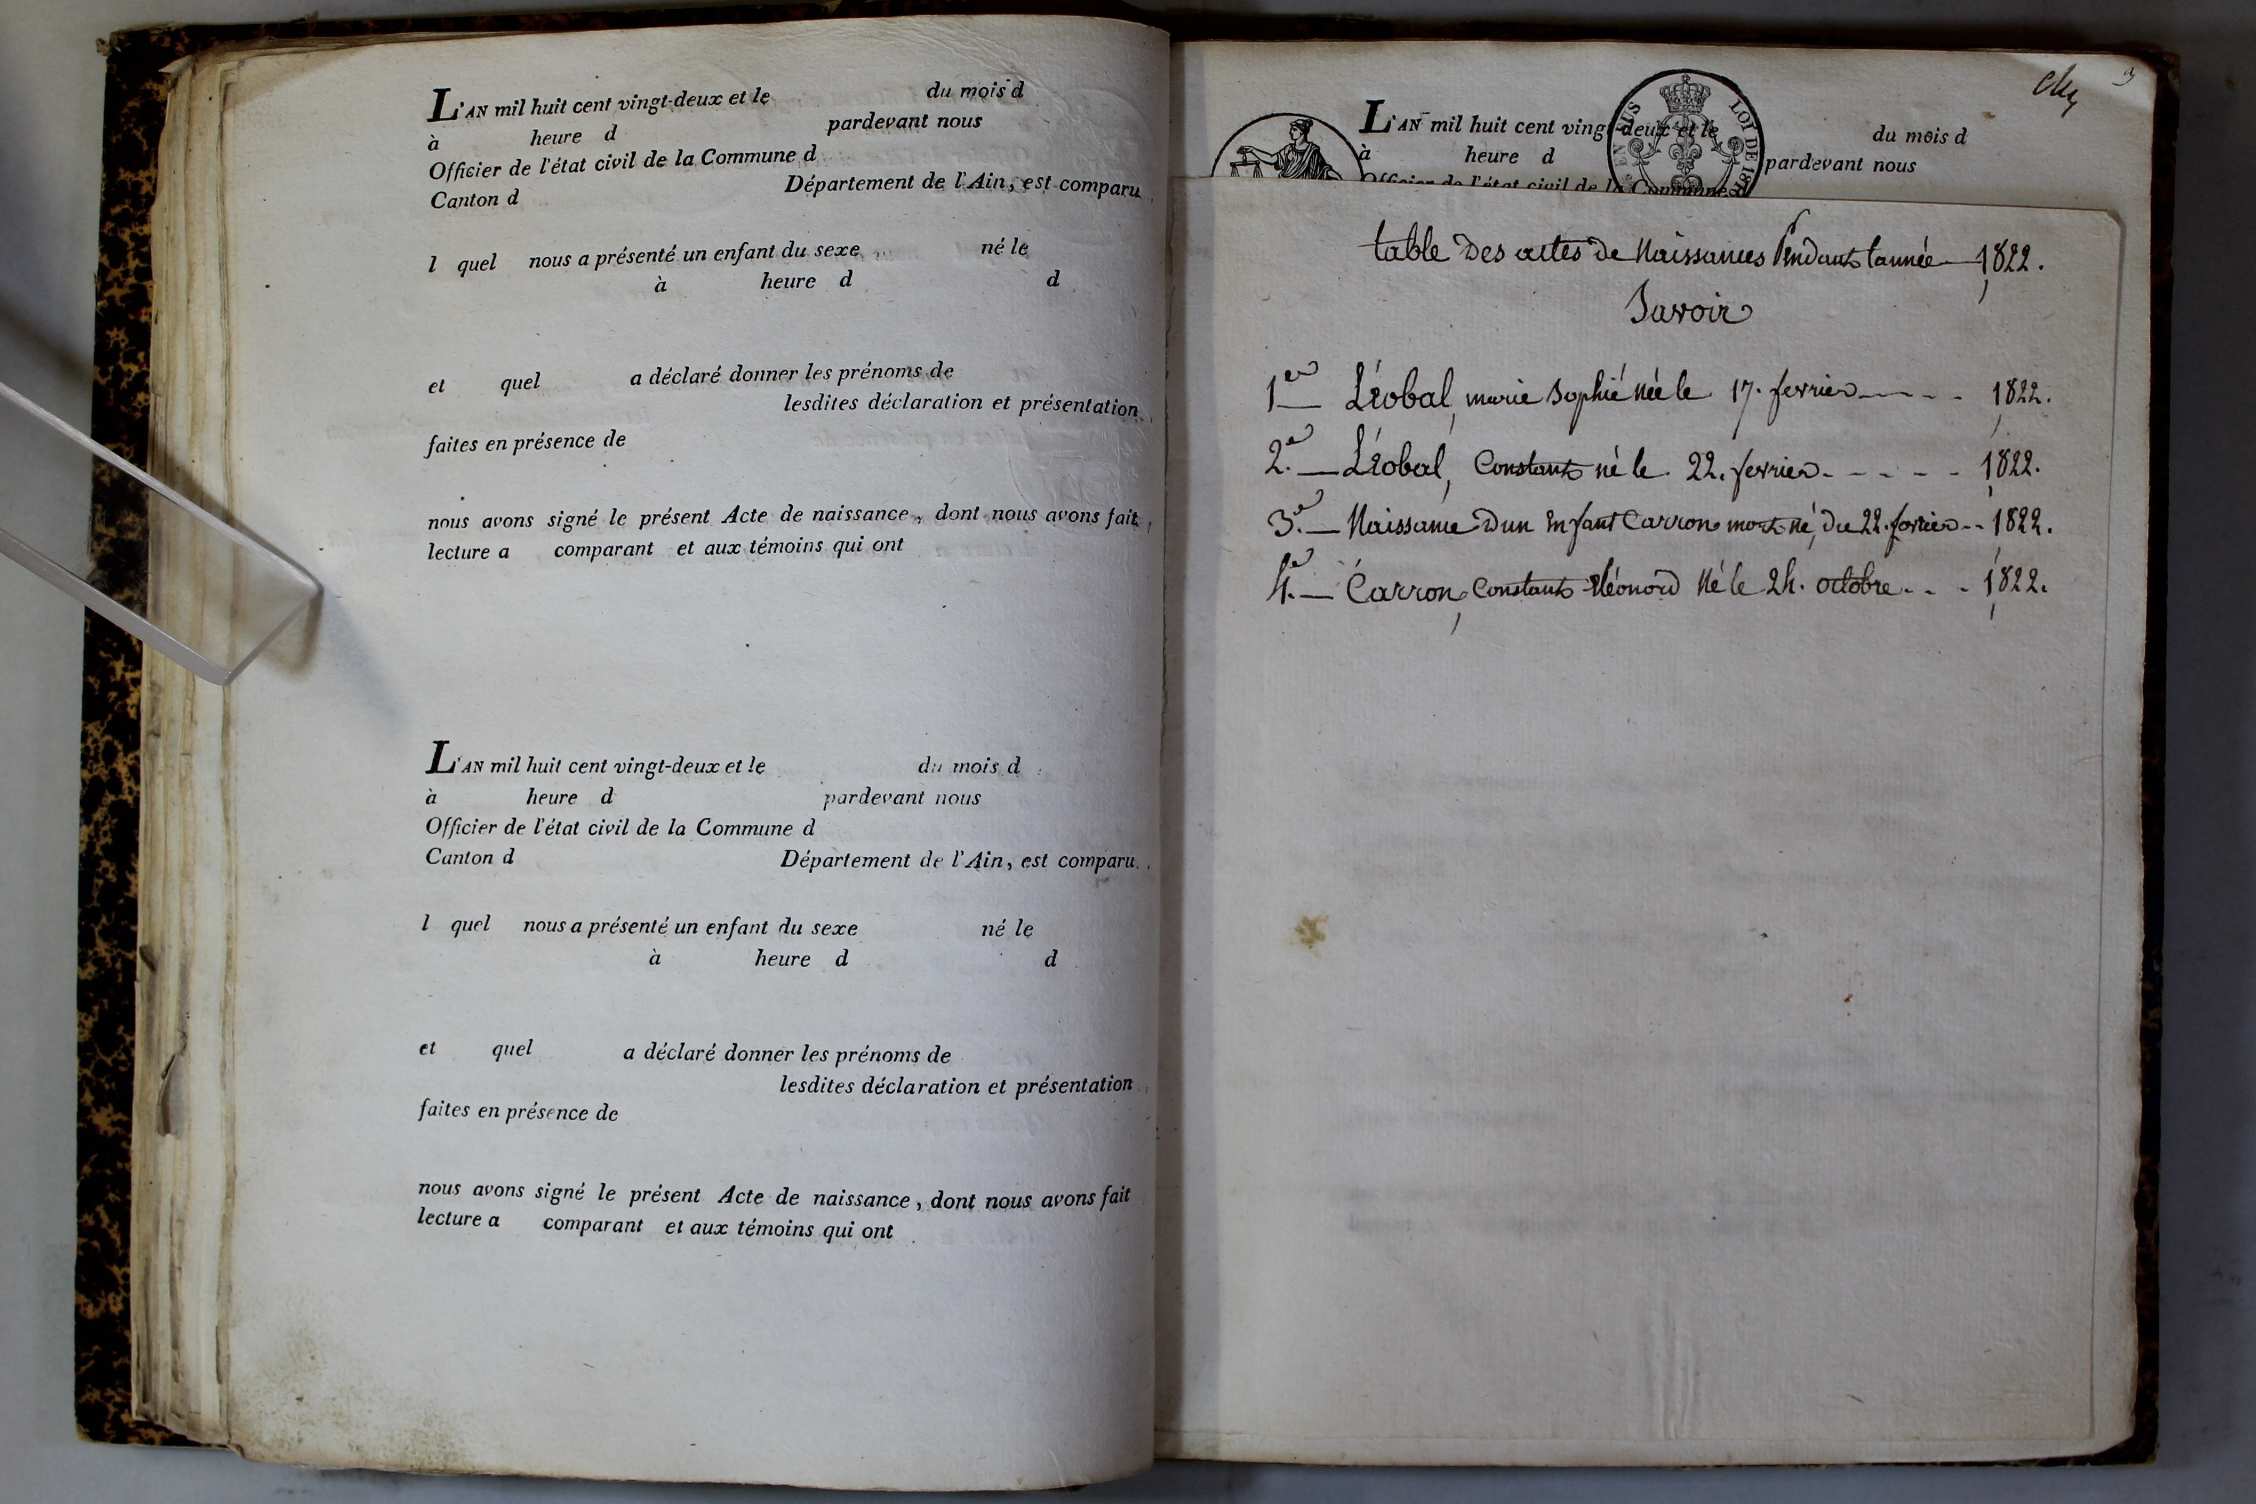 L'AN mil huit cent vingt-deux et le du mois d
à heure d pardevant nous
Officier de l'état civil de la Commune d
Canton d Département de l'Ain, est comparu
l quel nous a présenté un enfant du sexe né le
à heure d d
et quel a déclaré donner les prénoms de
lesdites déclaration et présentation
faites en présence de
nous avons signé le présent Acte de naissance, dont nous avons fait
lecture a comparant et aux témoins qui ont
L'AN mil huit cent vingt-deux et le du mois d
à heure d pardevant nous
Officier de l'état civil de la Commune d
Canton d Département de l'Ain, est comparu
l quel nous a présenté un enfant du sexe né le
à heure d d
et quel a déclaré donner les prénoms de
lesdites déclaration et présentation
faites en présence de
nous avons signé le présent Acte de naissance, dont nous avons fait
lecture a comparant et aux témoins qui ont
3
L'AN mil huit cent vingt deux et le du mois d
à heure d pardevant nous
Officier de l'état civil de la Commune
EN SUS LOI DE 181
table Des actes de Naissances Pendant l'année 1822.
Savoir
1er Léobal, marie Sophie née le 17. fevrier - - - 1822.
2.e Léobal, Constant né le 22. fevrier - - - - - 1822.
3.e Naissance D'un Enfant Carron mort né, Du 22. fevrier - - 1822.
4.e Carron, Constant Eléonord Né le 24. octobre - - - 1822.